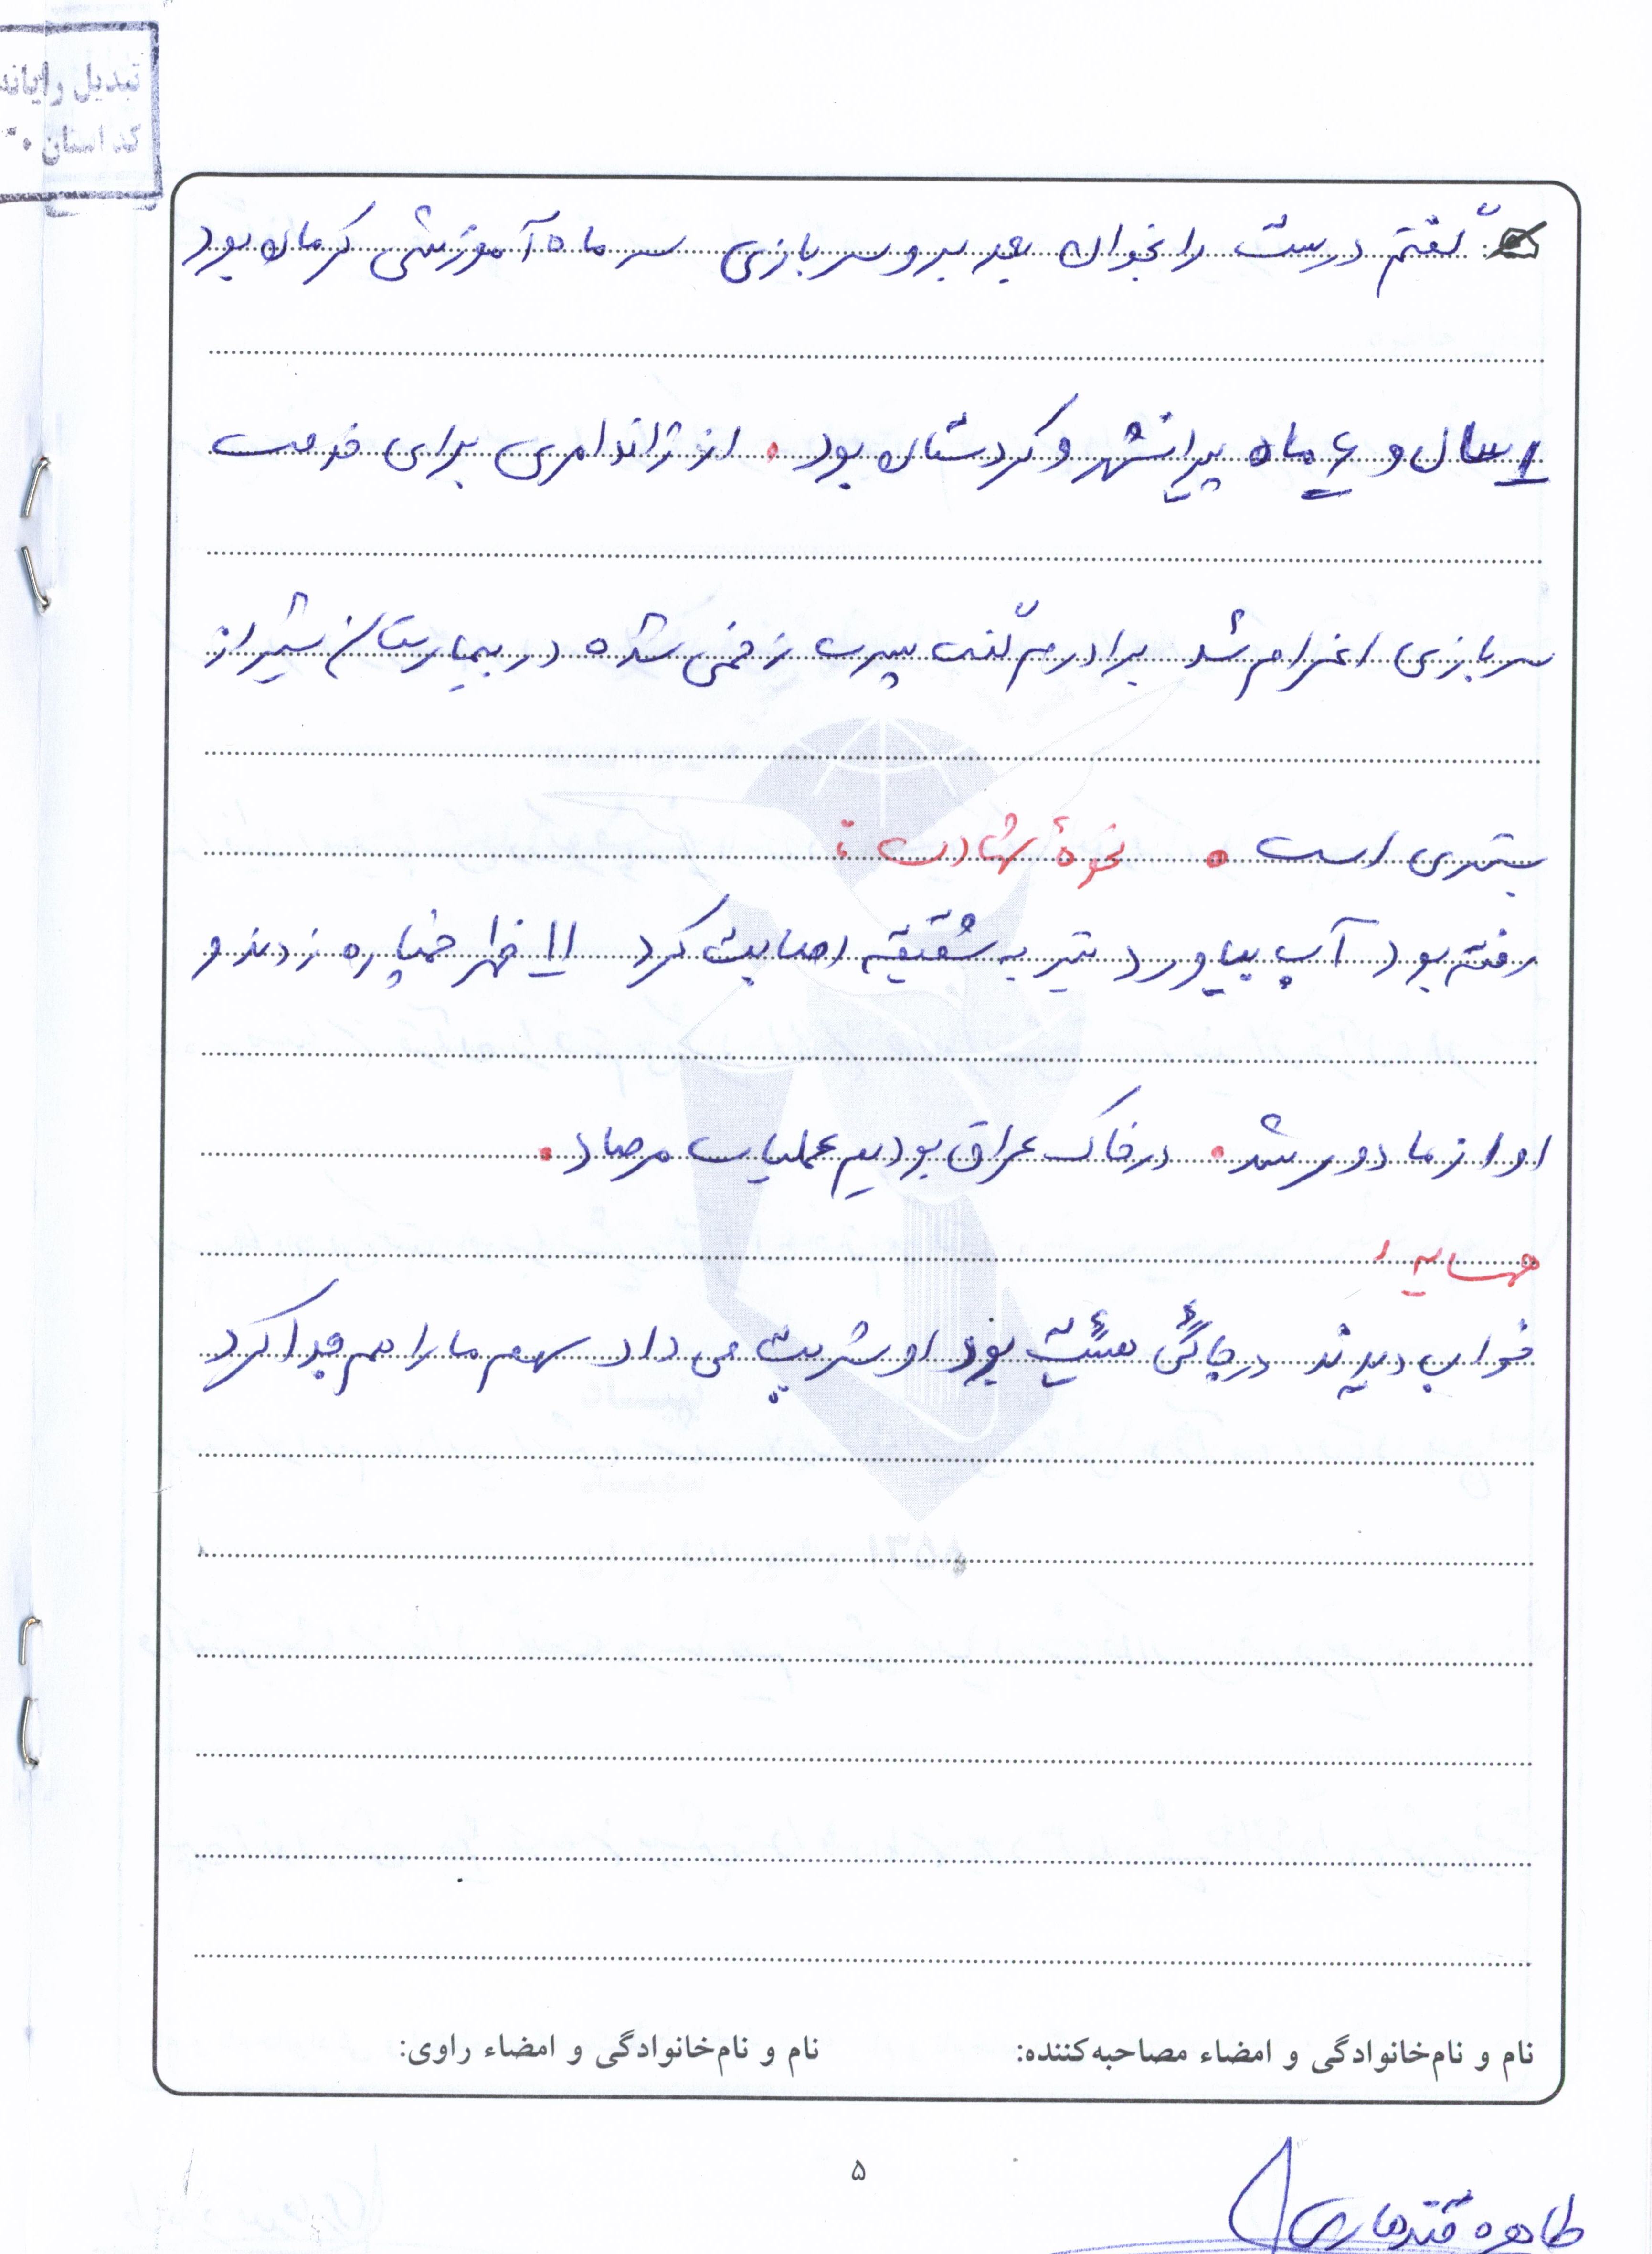 تبدیل رایانه
کد استان ۲۰
گفتم درست را بخوان بعد برو سربازی سه ماه آموزشی کرمان بود
۱ سال و ۶ ماه پیرانشهر و کردستان بود. از ژاندامری برای خدمت
سربازی اعزام شد برادرم گفت پسرت زخمی شده در بیمارستان شیراز
بستری است. نحوهٔ شهادت:
رفته بود آب بیاورد تیر به شقیقه اصابت کرد ۱۱ ظهر خمپاره زدند و
او از ما دور شد. در خاک عراق بودیم عملیات مرصاد.
همسایه
خواب دیدند در جائی هیئت بود او شربت می داد سهم ما را هم جدا کرد
نام و نام‌خانوادگی و امضاء مصاحبه‌کننده: نام و نام‌خانوادگی و امضاء راوی:
۵
طاهره قندهاری